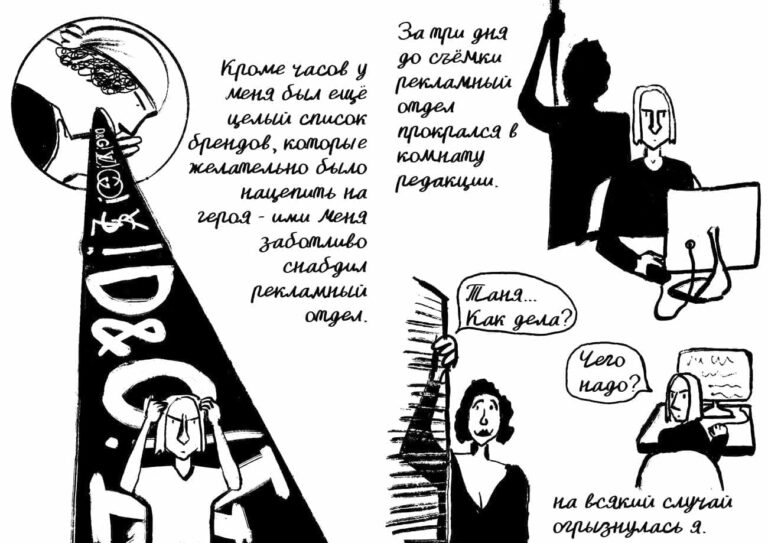 Кроме часов у
меня был ещё
целый список
брендов, которые
желательно было
нацепить на
героя - ими меня
заботливо
снабдил
рекламный
отдел.
D&G
!D&G!
За три дня
до съёмки
рекламный
отдел
прокрался в
комнату
редакции.
Таня...
Как дела?
Чего
надо?
на всякий случай
огрызнулась я.